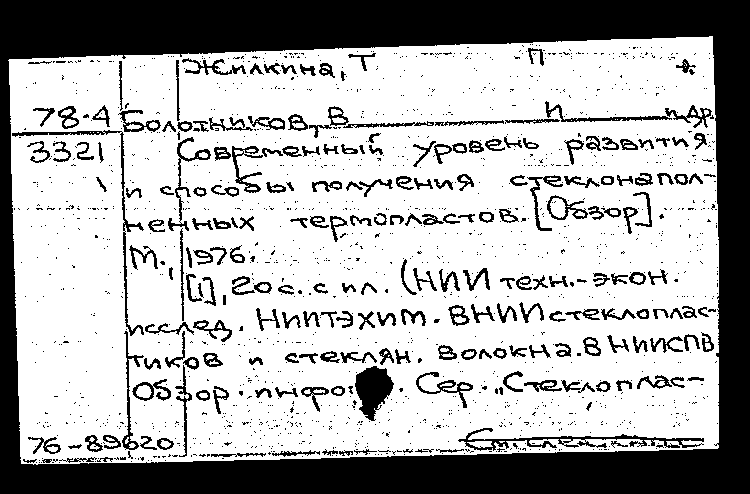 Жилкина, Т П
78-4 Болотников, В И и др.
3321 Современный уровень развития
и способы получения стеклонапол-
ненных термопластов. [Обзор].
М., 1976.
[1], 20 с. с ил. (НИИ техн.-экон.
исслед. НИИТЭХИМ. ВНИИ стеклоплас-
тиков и стеклян. волокна. ВНИИСПВ.
Обзор. инфо . Сер. „Стеклоплас-
76-89620 См. след. карт.